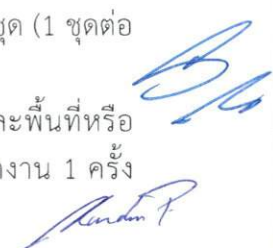 ชุด (1 ชุดต่อ
ละพื้นที่หรือ
งาน 1 ครั้ง